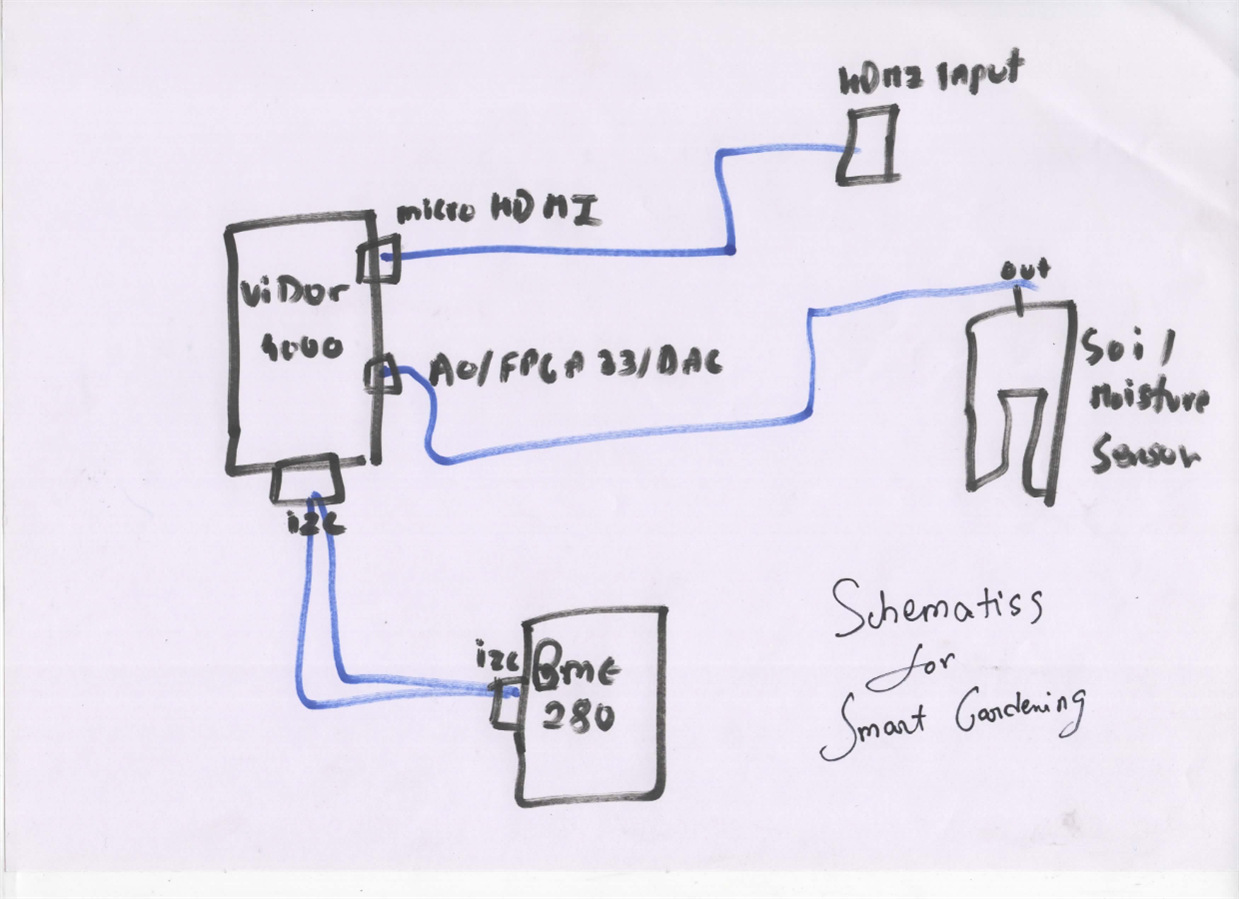 HDMI Input
micro HDMI
ViDor
4000
out
A0/FPGA 33/DAC
Soil
Moisture
Sensor
i2c
i2c
Bme
280
Schematiss
for
Smart Gardening